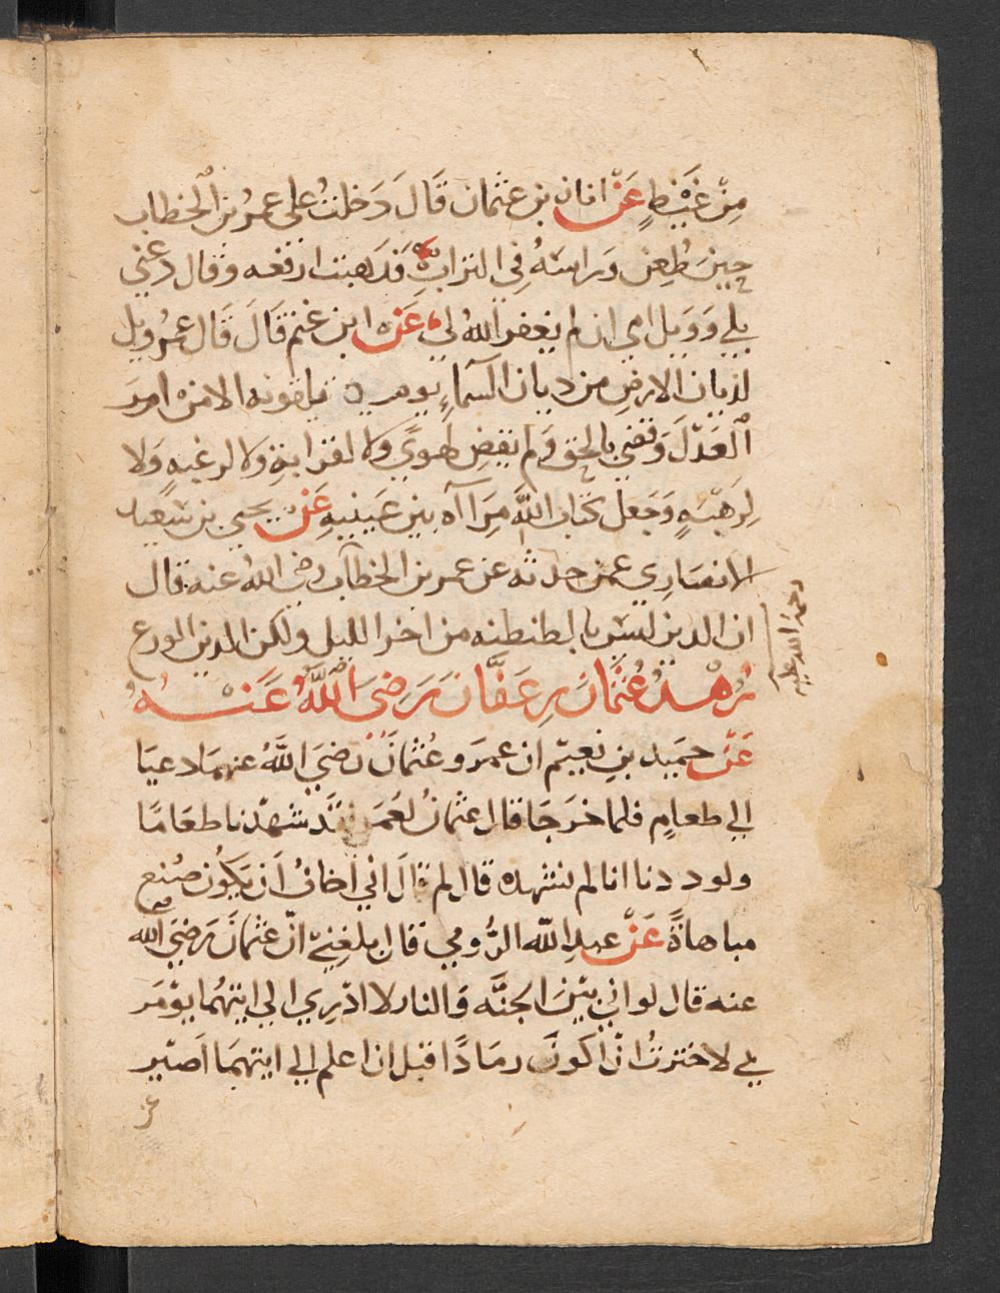 مِنْ غَيْظٍ عَنْ ابان بن عثمان قَالَ دَخلتُ على عمرُ بن الخطاب
حِينَ طُعِنَ وَرَاسَهُ فِي الترابِ فَذَهبت ارفعه وقال دعني
ويلي وَوَيل امي ان لم يغفر اللهُ لي عَن ابن غنم قَالَ قَال عمرُ ويل
لديان الارضِ من ديان السماءِ يوم يلقونه الا من امرَ
العَدْلَ وَقضي بالحق وَلم يقضِ لهويً ولا لقرابةٍ ولا لرغبهٍ وَلا
لِرَهْبَهٍ وَجَعل كتاب اللهِ مِرَاآه بين عَينيهِ عَن يحيى بن سَعِيد
الانصَارِي عمن حدثه عن عمر بن الخطاب رضي اللهُ عنه قال
ان الدين ليس بالطنطنه من اخر الليل ولكن الدين الورع
رحمة الله عليه
زُهْدُ عُثمانَ بنِ عَفَّانَ رَضِيَ اللَّهُ عَنْهُ
عَنْ حمَيد بنِ نعَيْم ان عمرَ وعُثمَانَ رَضيَ اللَّهُ عنهمَا دعيَا
الي طعامٍ فلما خرَجَا قال عثمانُ لعُمَر قَد شهدنا طعَامًا
ولوددنا انا لم نشهده قال لم قَالَ اني اَخافُ اَن يَكُون صُنع
مباهاةً عَنْ عبدِ اللّه الرُّومي قال بلغنِي انّ عثمَانَ رَضيَ الله
عنه قال لو اني بَيْنَ الجنَّه وَالنار لا ادْرِي الي ايتهُما يؤمَر
بي لاخترتُ انْ اَكونَ رمَادًا قبل ان اعلم الي ايتهمَا اَصَير
عن